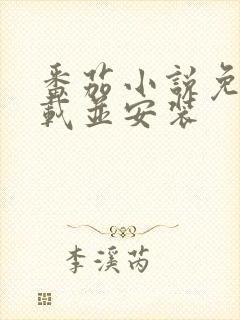 番茄小说免
载并安装
李溪芮